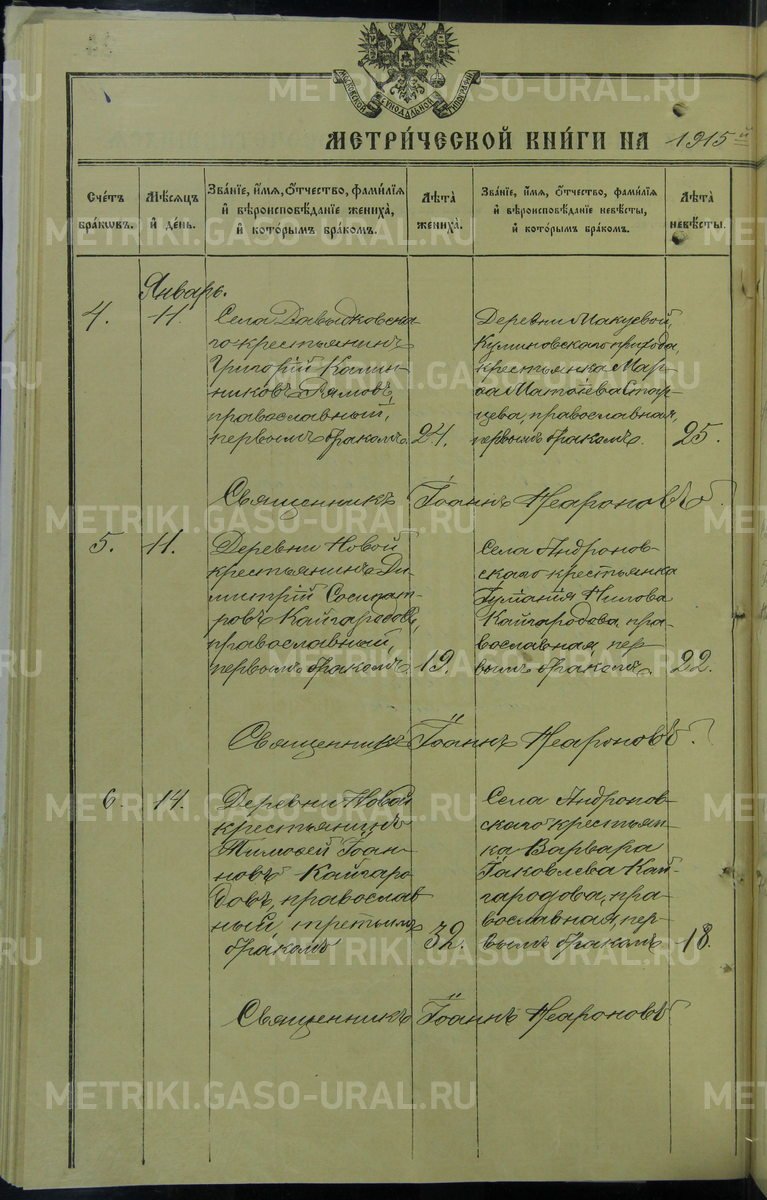 METRIKI.GASO-URAL.RU
МОСКОВСКОЙ СѴНОДАЛЬНОЙ ТИПОГРАФІИ
МЕТРИ́ЧЕСКОЙ КНИ́ГИ НА 1915 й
Сче́тъ бра́ковъ.
Мѣ́сяцъ и҆ де́нь.
Зва́нїе, и҆́мя, о҆́тчество, фами́лїя и҆ вѣроисповѣ́данїе жениха̀, и҆ кото́рымъ бра́комъ.
Лѣ́та жениха̀.
Зва́нїе, и҆́мя, о҆́тчество, фами́лїя и҆ вѣроисповѣ́данїе невѣ́сты, и҆ кото́рымъ бра́комъ.
Лѣ́та невѣ́сты.
Январь.
4.
11.
Села Давыдковска-
го крестьянинъ
Григорій Калин-
никовъ Лямовъ,
православный,
первымъ бракомъ.
24.
Деревни Макуевой,
прихода,
крестьянка Мар-
ѳа Матѳіева Стар-
цева, православная,
первымъ бракомъ.
25.
Священникъ Іоаннъ Неароновъ.
5.
11.
Деревни Новой
крестьянинъ Ди-
митрій Сосипат-
ровъ Кайгародовъ,
православный,
первымъ бракомъ.
19.
Села Андронов-
скаго крестьянка
Нилова
Кайгародова, пра-
вославная, пер-
вымъ бракомъ.
22.
Священникъ Іоаннъ Неароновъ.
6.
14.
Деревни Новой
крестьянинъ
Тимоѳей Іоан-
новъ Кайгаро-
довъ, православ-
ный, третьимъ
бракомъ
32.
Села Андронов-
скаго крестьян-
ка Варвара
Іаковлева Кай-
гародова, пра-
вославная, пер-
вымъ бракомъ.
18.
Священникъ Іоаннъ Неароновъ